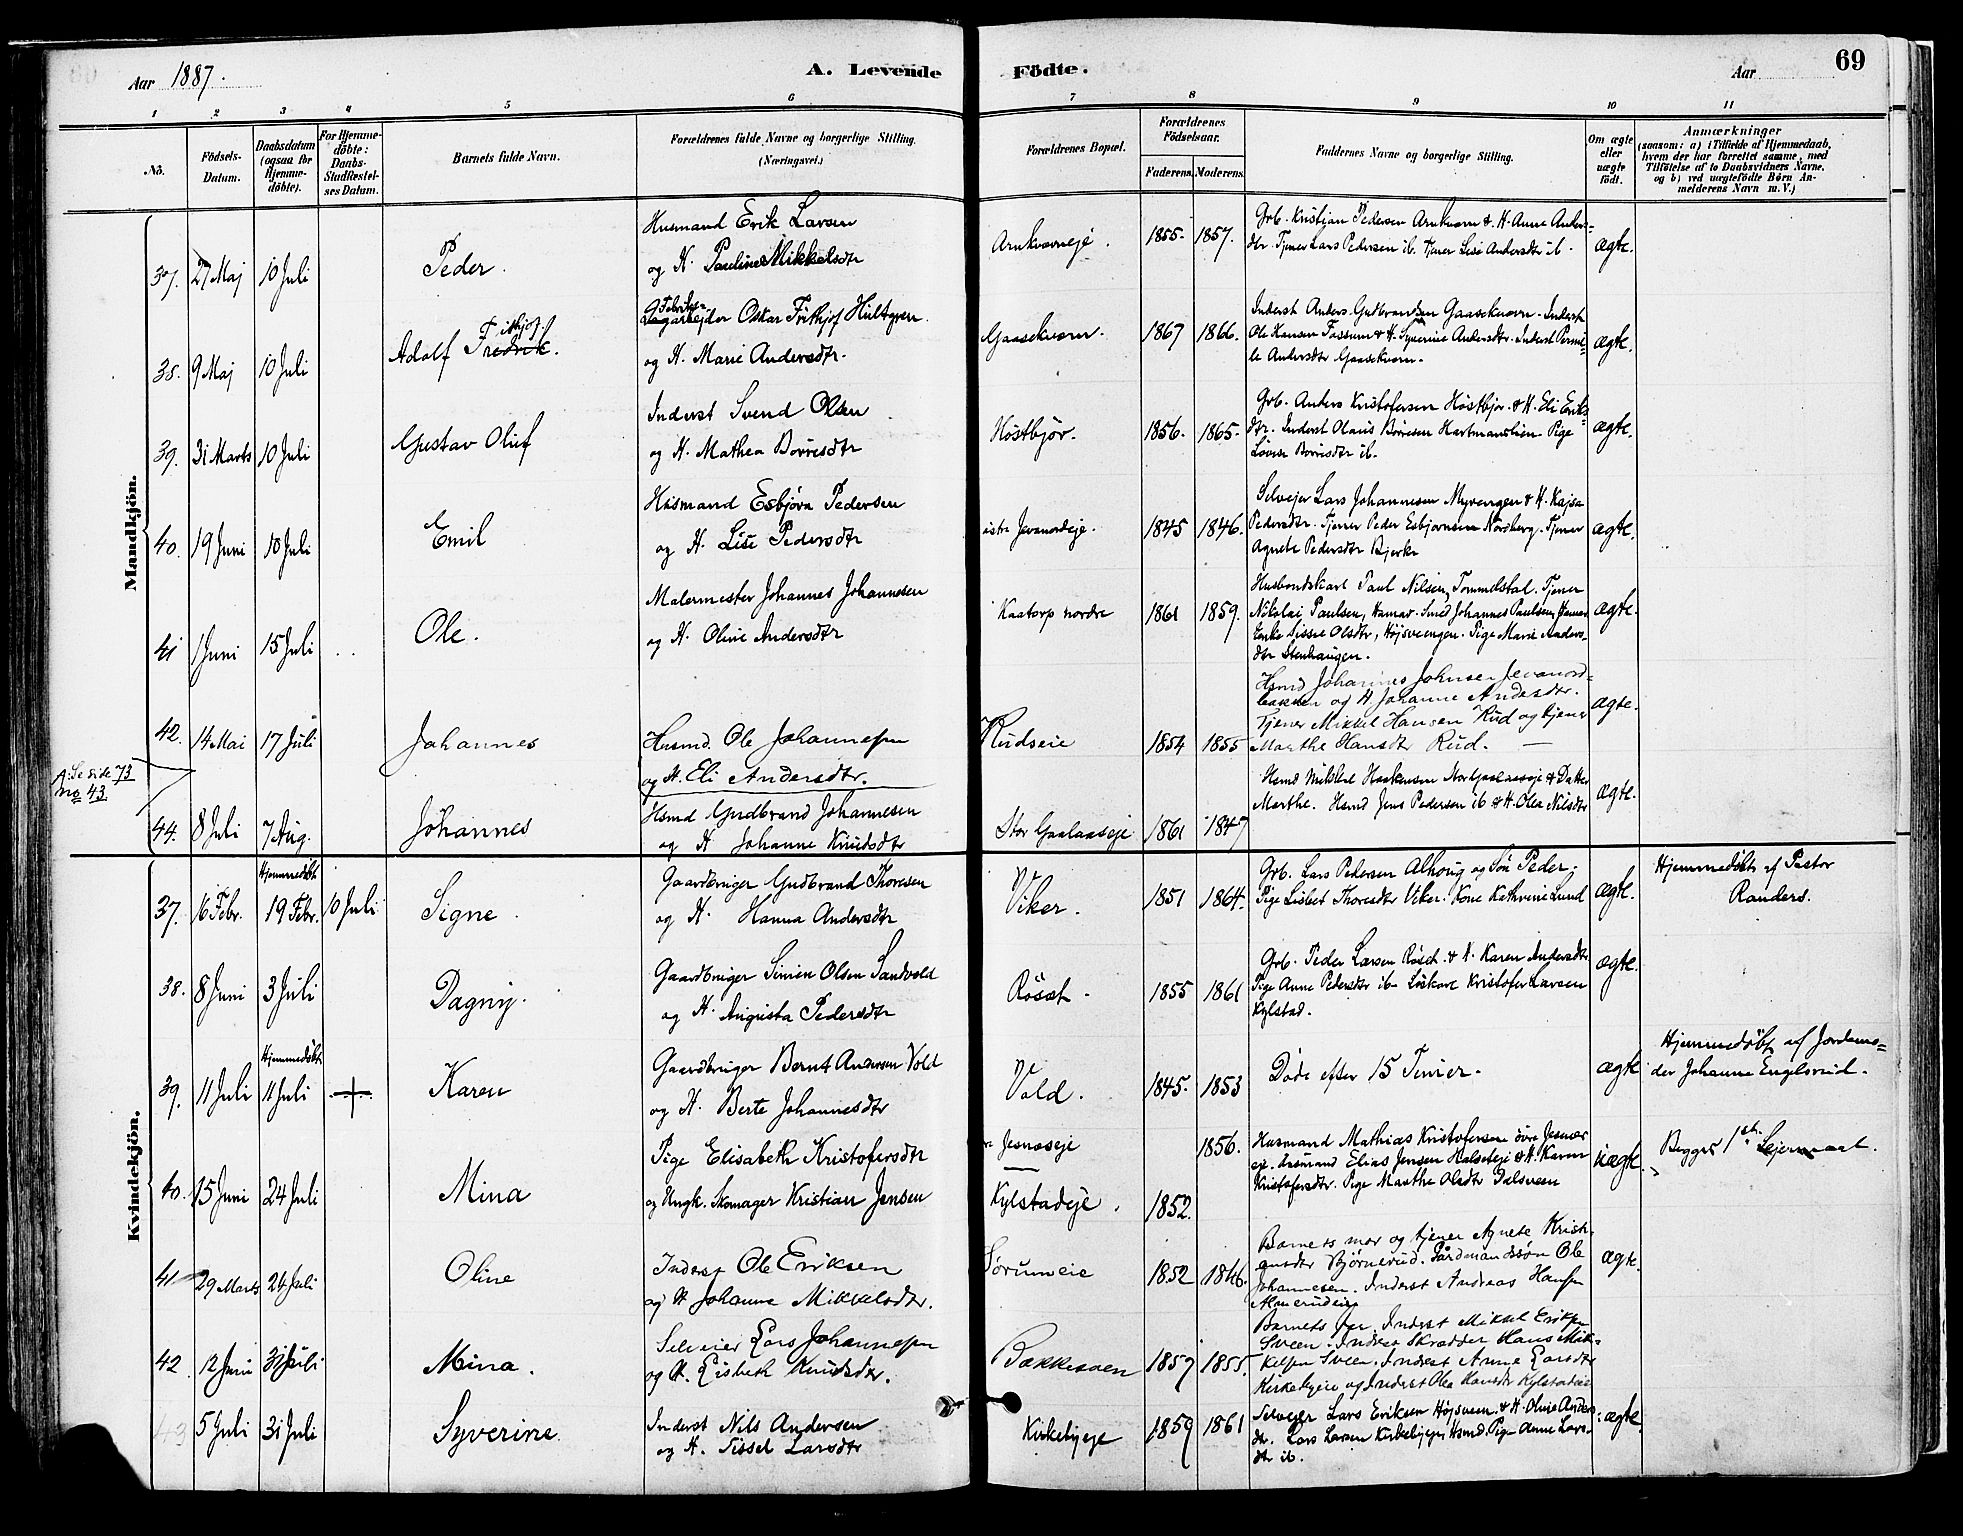 Aar 1887.
A. Levende Födte.
Aar
69
1 2 3 4 5 6 7 8 9 10 11
No.
Födsels-Datum.
Daabsdatum (ogsaa for Hjemme-döbte).
For Hjemme-döbte: Daabs-Stadfæstel-ses Datum.
Barnets fulde Navn.
Forældrenes fulde Navne og borgerlige Stilling. (Næringsvei.)
Forældrenes Bopæl.
Forældrenes Födselsaar.
Faderens. Moderens.
Faddernes Navne og borgerlige Stilling.
Om ægte eller uægte födt.
Anmærkninger
(saasom: a) i Tilfælde af Hjemmedaab,
hvem der har forrettet samme, med
Tilföielse af to Daabsvidners Navne,
og b) ved uægtefödte Börn An-
melderens Navn m. V.)
Mandkjön.
37. 27 Maj 10 Juli Peder.
Husmand Erik Larsen
og H. Pauline Mikkelsdtr
Arnkværneje. 1855. 1857.
Grb. Kristian Pedersen Arnkværn & H. Anne Anders-
dtr. Tjener Lars Pedersen ib. Tjener Lise Andersdtr ib.
ægte.
38. 9 Maj 10 Juli Adolf Fredrik. Frithjof
Fabriks-
Dagarbejder Oskar Frithjof Hultgren.
og H. Marie Andersdtr.
Gaasekværn. 1867 1866.
Inderst Anders Gudbrandsen Gaasekværn. Inderst
Ole Hansen Fossum & H. Syverine Andersdtr. Inderst Pernil-
le Andersdtr Gaasekværn.
ægte.
39. 31 Marts 10 Juli Gustav Oluf
Inderst Svend Olsen
og H. Mathea Börresdtr
Höstbjör. 1856. 1865.
Grb. Anders Kristofersen Höstbjör. & H. Eli Eriks-
dtr. Inderst Olaus Börresen Hartmanstien Pige
Lovise Börresdtr ib.
ægte.
40. 19 Juni 10 Juli Emil
Husmand Esbjörn Pedersen
og H. Lise Pedersdtr
Jevanordeje. 1845 1846.
Selvejer Lars Johannesen Myrengen & H. Kajsa
Pedersdtr. Tjener Peder Esbjornsen Nordberg. Tjener
Agnete Pedersdtr Bjerke
ægte.
41 1 Juni 15 Juli Ole.
Malermester Johannes Johannesen
og H. Oline Andersdtr
Kaatorp nordre 1861 1859.
Husbondskarl Paul Nilsen, Tommelstal. Tjener
Nikolai Paulsen, Hamar. Smed Johannes Paulsen,
Enke Sissel Olsdtr, Höjsveengen. Pige Marie Anders-
dtr Stenhaugen.
ægte.
42. 14 Mai 17 Juli Johannes
Husmd. Ole Johannesen
og H. Eli Andersdtr.
Rudseie 1854 1855
Hsmd Johannes Johnsen Jevanord-
bakken og H Johanne Andersdtr.
Tjener Mikkel Hansen Rud og tjener
Marthe Hansdtr Rud.
ægte.
Se side 73
no 43
44. 8 Juli 7 Aug. Johannes
Hsmd Gudbrand Johannesen
og H Johanne Knudsdtr
Stor Gaalaaseje 1861 1847
Hsmd Mikkel Haakensen & Datter
Marthe. Hsmd Jens Pedersen ib & H. Olea Nilsdtr
ægte.
Kvindekjön.
37. 16 Febr. Hjemmedøbt 19 Febr. 10 Juli Signe
Gaardbruger Gudbrand Thoresen
og H. Hanna Andersdtr
Viker. 1851 1864.
Grb. Lars Pedersen Alhoug og Søn Peder,
Pige Lisbet Thoresdtr Viker. Kone Kathrine Lund
ægte.
Hjemmedöbt af Pastor
Randers.
38. 8 Juni 3 Juli Dagny.
Gaardbruger Simen Olsen Sandvold
og H. Augusta Pedersdtr
Röset. 1855 1861
Grb. Peder Larsen Röset. & H. Karen Andersdtr
Pige Anne Pedersdtr ib. Löskarl Kristofer Larsen
Kylstad.
ægte.
39. 11 Juli Hjemmedöbt 11 Juli Karen
Gaardbruger Bernt Andersen Vold
og H. Berte Johannesdtr
Vold. 1845. 1853
Döde efter 15 Timer.
ægte
Hjemmedöbt af Jordemo-
der Johanne Engelsrud.
40. 15 Juni 24 Juli Mina
Pige Elisabeth Kristofersdtr
og Ungk. Skomager Kristian Jensen
Jesnæseje 1856.
Kylstadeje. 1852.
Husmand Mathias Kristofersen övre Jesnæs-
eje. Husmand Elias Jensen Halseteje & H. Karen
Kristofersdtr. Pige Marthe Olsdtr Dalsveen
uægte.
Begges 1ste Lejermaal.
41 29 Marts 24 Juli Oline
Inderst Ole Eriksen
og H Johanne Mikkelsdtr.
Sörumeie 1852 1846.
Barnets mor og tjener Agnete Krist-
Björnerud. Gårdmandssön Ole
Johannesen. Inderst Andreas Hansen
Almerudeie
ægte.
42 12 Juni 31 Juli Mina.
Selveier Lars Johannesen
og H. Lisbeth Knudsdtr.
Bakkesveen 1857 1855.
Barnets far, Inderst Mikkel Eriksen
Sveen. Inderst Skrædder Hans Mik-
kelsen Sveen. Inderst Anne Larsdtr
Kirkebyeie og Inderst Olea Hansdtr Kylstadeie
43 5 Juli 31 Juli Syverine
Inderst Nils Andersen
og H. Sissel Larsdtr
Kirkebyeje 1859 1861
Selvejer Lars Eriksen Höjsveen. & H. Oline Anders-
dtr. Lars Larsen Kirkebyeje, Hsmd. Pige Anne Lars-
dtr ib.
ægte